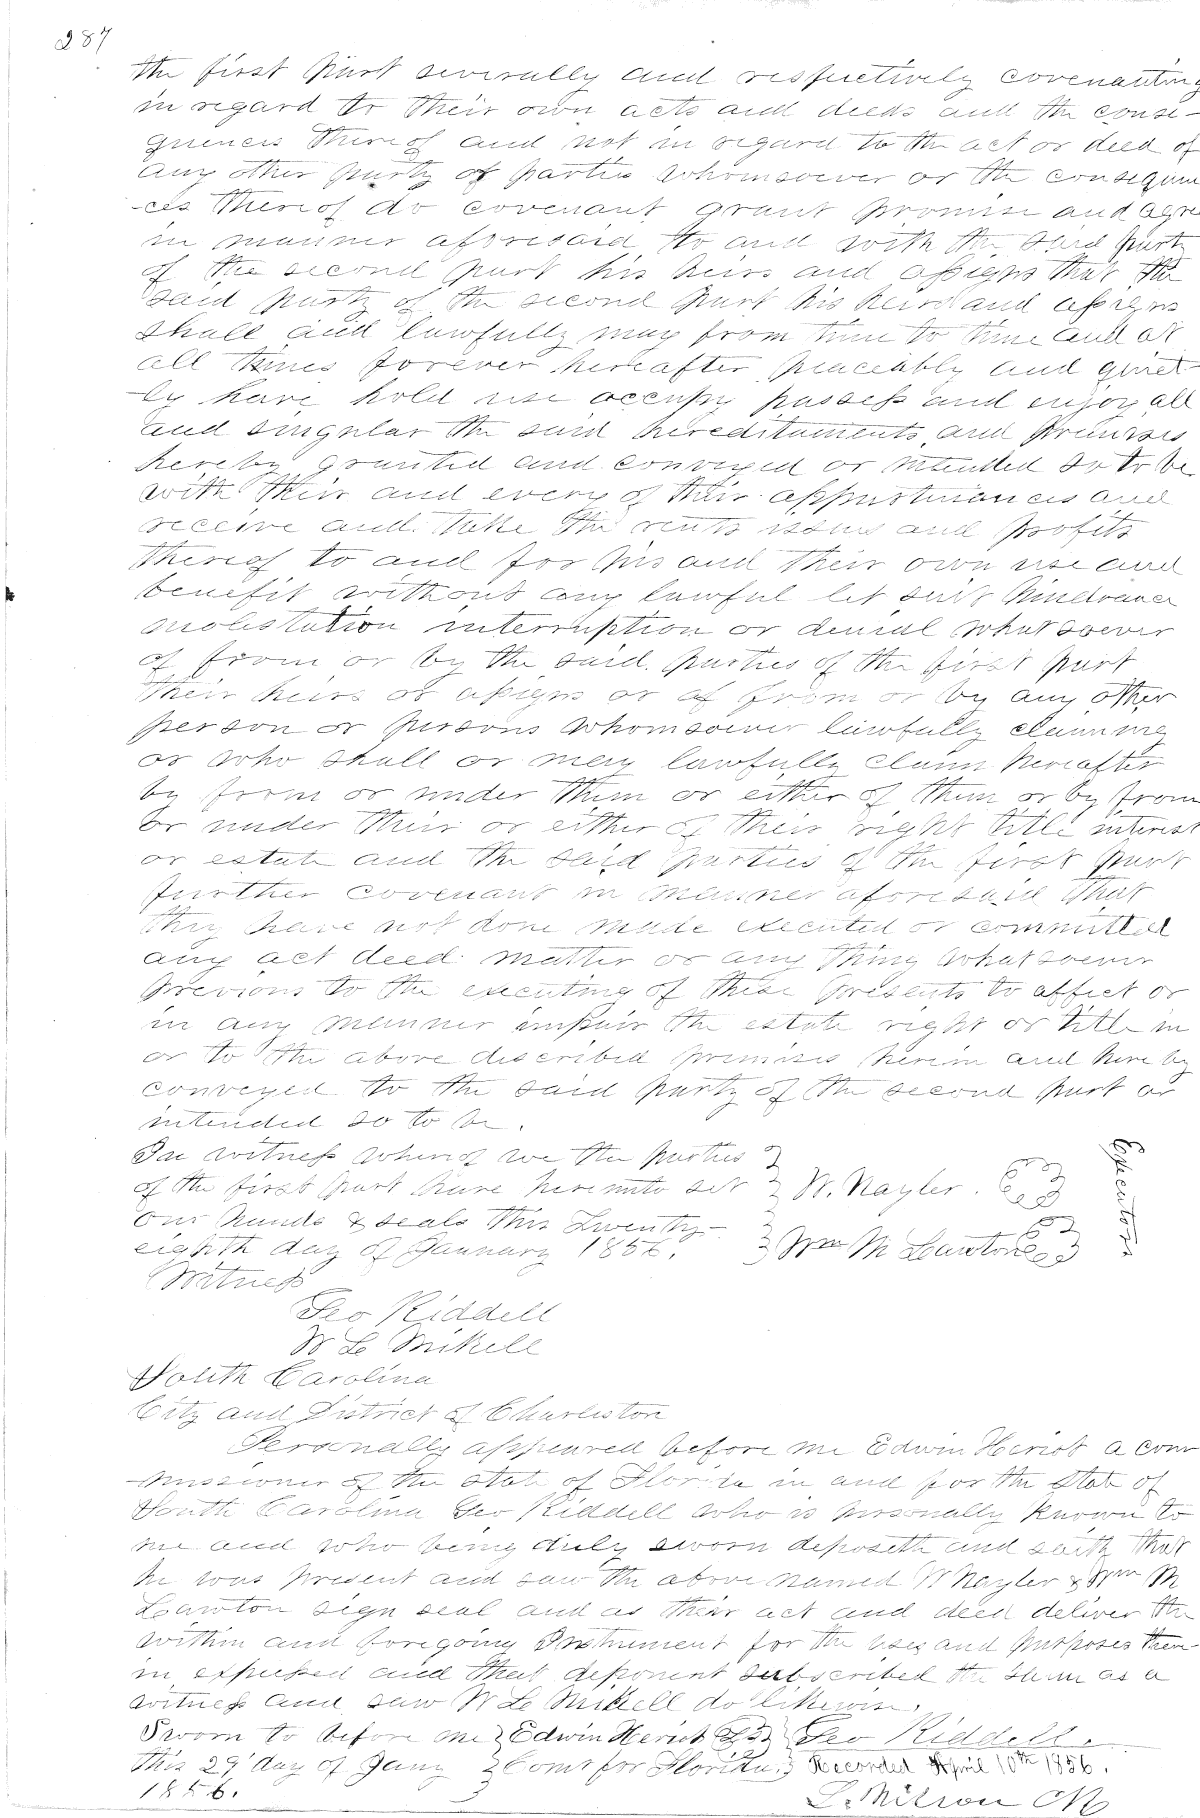 287
the first part severally and respectively covenanting
in regard to their own acts and deeds and the conse-
quences thereof and not in regard to the act or deed of
any other party of parties whomsoever or the consequen
-ces thereof do covenant grant promise and agree
in manner aforesaid to and with the said party
of the second part his heirs and assigns that the
said party of the second part his heirs and assigns
shall and lawfully may from time to time and at
all times forever hereafter peaceably and quiet-
-ly have hold use occupy possess and enjoy all
and singular the said hereditaments and premises
hereby granted and conveyed or intended so to be
with their and every of their appurtenances and
receive and take the rents issues and profits
thereof to and for his and their own use and
benefit without any lawful let suit hindrance
molestation interruption or denial whatsoever
of from or by the said parties of the first part
their heirs or assigns or of from or by any other
person or persons whomsoever lawfully claiming
or who shall or may lawfully claim hereafter
by from or under them or either of them or by from
or under their or either of their right title interest
or estate and the said parties of the first part
further covenant in manner aforesaid that
they have not done made executed or committed
any act deed matter or any thing whatsoever
previous to the executing of these presents to affect or
in any manner impair the estate right or title in
or to the above described premises herein and hereby
conveyed to the said party of the second part or
intended so to be.
In witness whereof we the parties
of the first part have hereunto set W. Nayler.
our hands & seals this Twenty- Executors
eighth day of January 1856. Wm M Lawton
Witness
Geo Riddell
W Le Mikell
South Carolina
City and District of Charleston
Personally appeared before me Edwin Heriot a com
-missioner of the state of Florida in and for the state of
South Carolina Geo Riddell who is personally known to
me and who being duly sworn deposeth and saith that
he was present and saw the above named W Nayler & Wm M
Lawton sign seal and as their act and deed deliver the
within and foregoing Instrument for the uses and purposes there-
in expressed and that deponent subscribed the same as a
witness and saw W Le Mikell do likewise.
Sworn to before me Edwin Heriot LS Geo Riddell.
this 29 day of Jany Comr for Florida. Recorded April 10th 1856.
1856. L. Wilson Clk